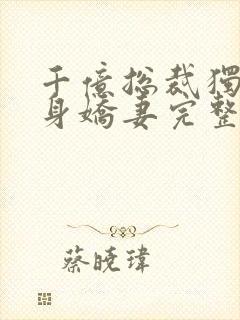 千億捴裁獨
身嬌妻完整
蔡曉瑋